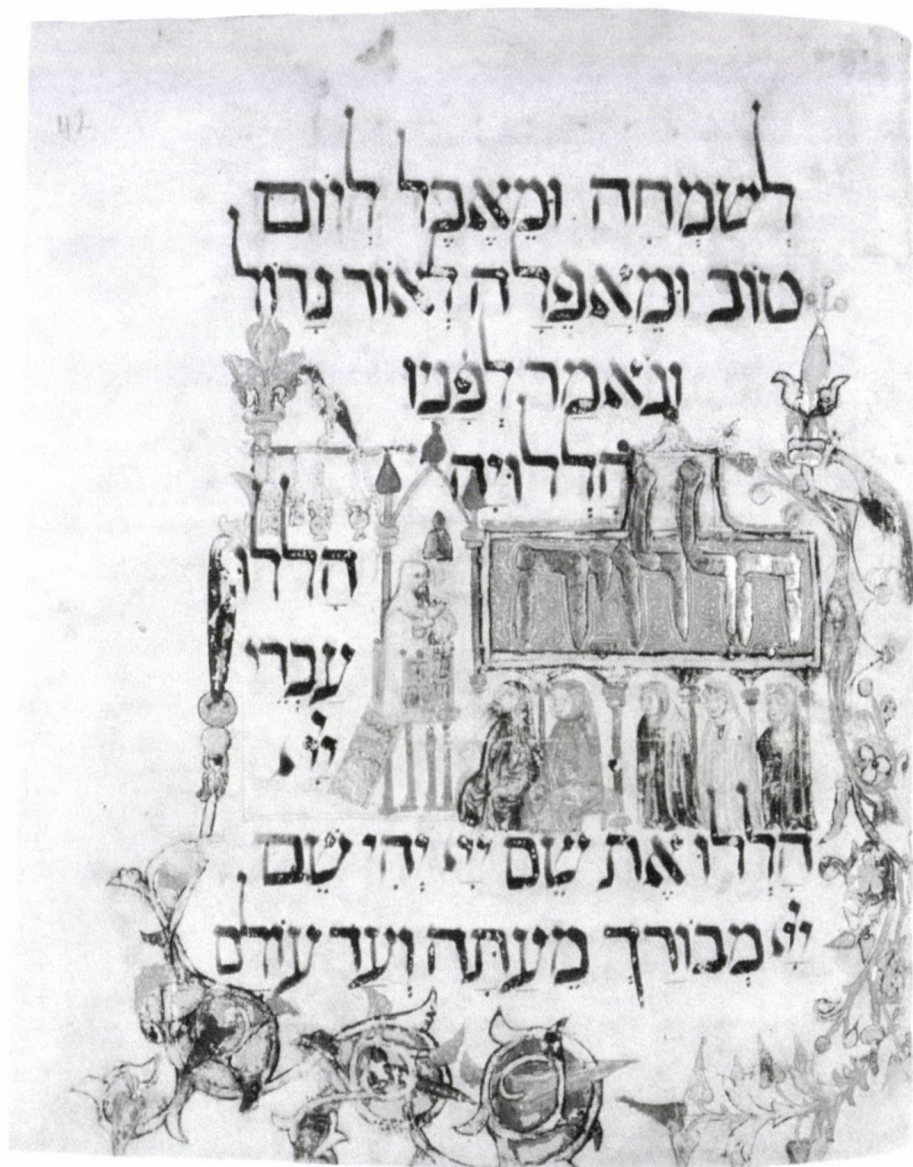 לשמחה ומאבל ליום
טוב ומאפלה לאור גדול
ונאמר לפניו
הללויה
הללויה
הללו
עבדי
יי
הללו את שם יי יהי שם
יי מבורך מעתה ועד עולם